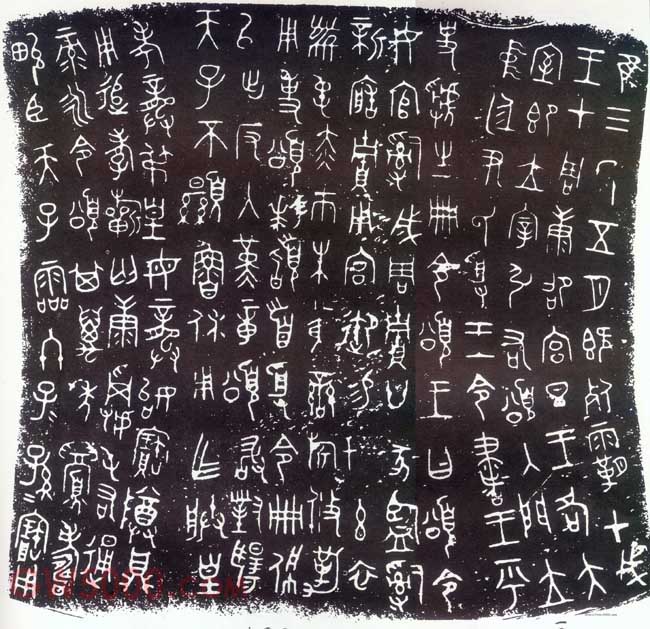 隹三年五月既死霸甲戌
王才周康卲宮旦王各大
室即立宰引右頌入門立
中廷尹氏受王令書王乎
史虢生冊令頌王曰頌令
女官𤔲成周貯廿家監𤔲
新造貯用宮御易女玄衣
黹屯赤巿朱黃䜌旂攸勒
用事頌拜稽首受令冊佩
以出反入堇章頌敢對揚
天子不顯魯休用乍朕皇
考龔弔皇母龔始寶尊鼎
用追孝祈匄康屯右通
彔永令頌其萬年眉壽
畯臣天子霝冬子孫寶用